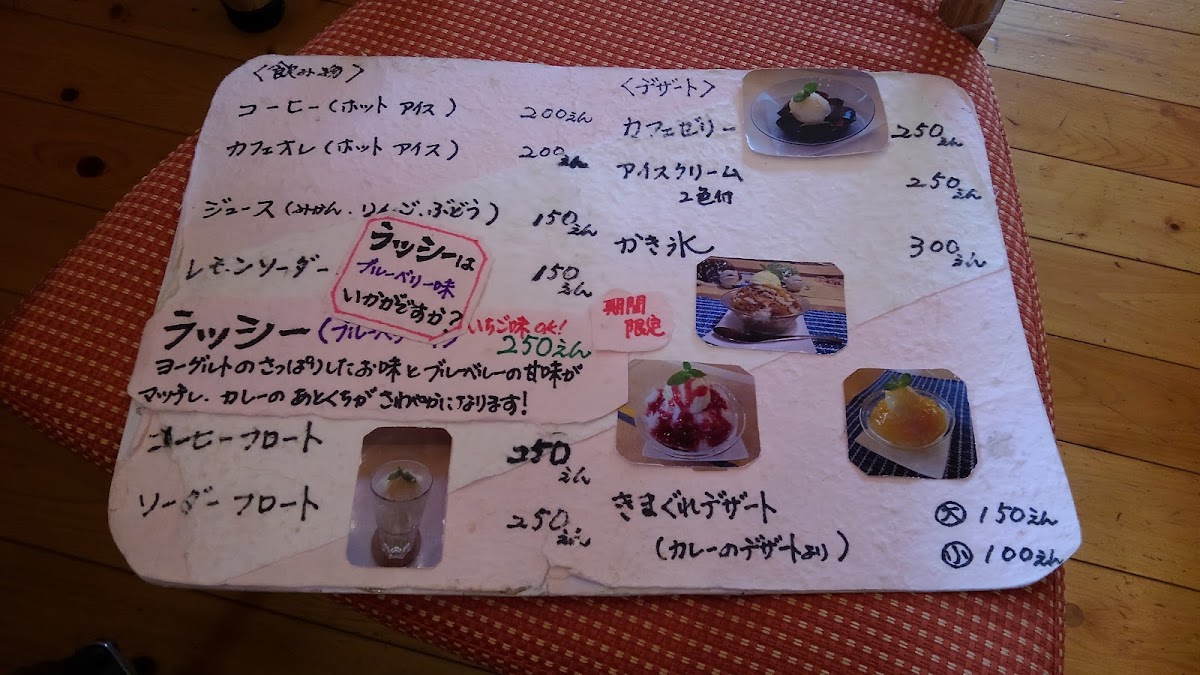 〈飲み物〉
コーヒー(ホット アイス) 200えん
カフェオレ(ホット アイス) 200えん
ジュース(みかん.りんご.ぶどう) 150えん
レモンソーダー 150えん
ラッシーは
ブルーベリー味
いかがですか?
ラッシー(ブルーベ
いちご味OK!
250えん
ヨーグルトのさっぱりしたお味とブルーベレーの甘味が
マッチし、カレーのあとくちがさわやかになります!
コーヒーフロート 250えん
ソーダーフロート 250えん
〈デザート〉
カフェゼリー 250えん
アイスクリーム 250えん
2色付
かき氷 300えん
期間
限定
きまぐれデザート 大 150えん
(カレーのデザートより) 小 100えん